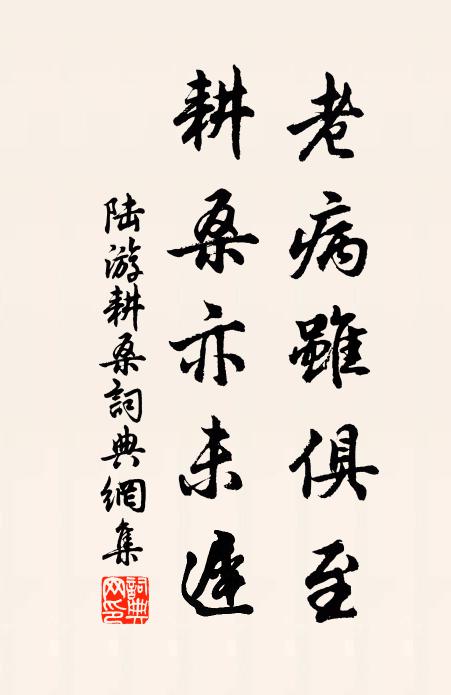 老病雖俱至
耕桑亦未遲
陸游耕桑詞典網集
詞典
网印